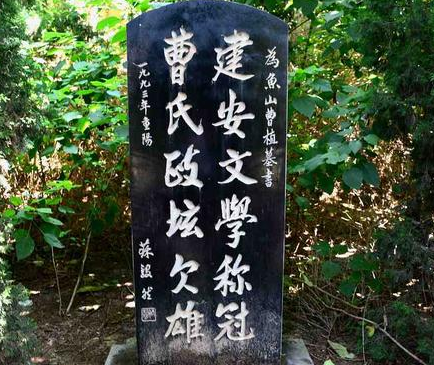 為魚山曹植墓書
建安文學称冠
曹氏政坛欠雄
一九九三年重陽
蘇毅然